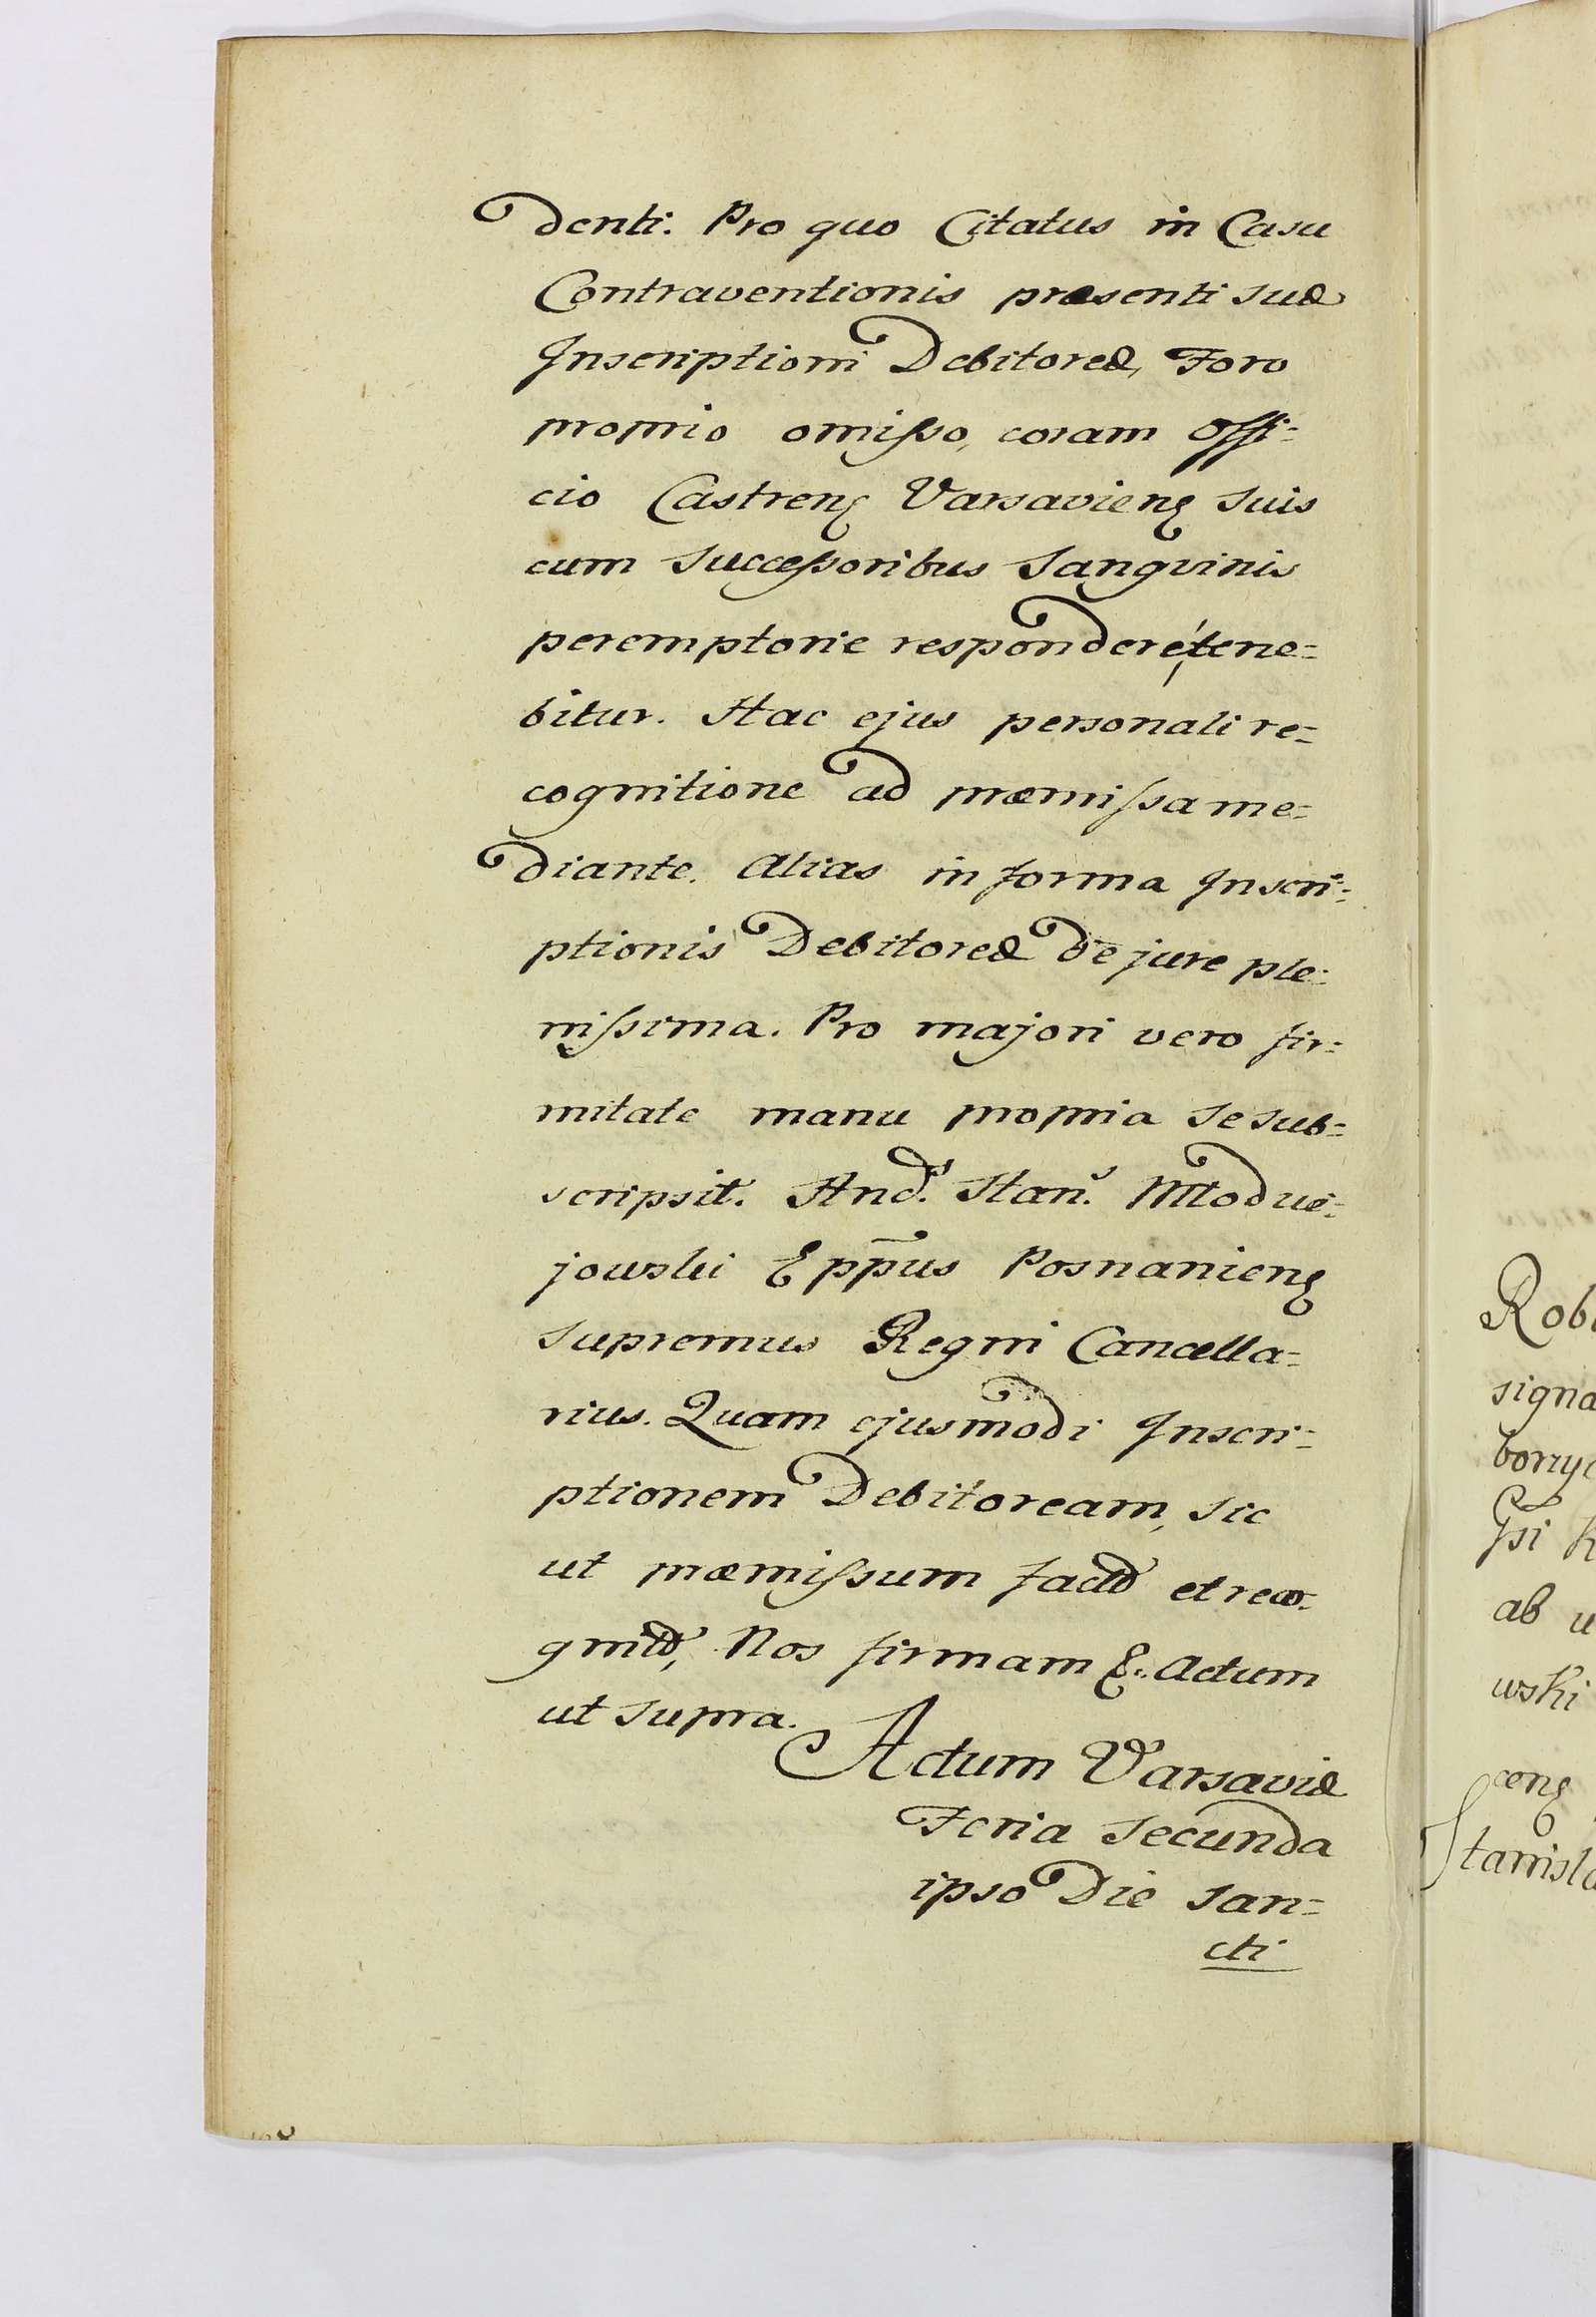 denti. Pro quo Citatus in Casu
Contraventionis præsenti suæ
Inscriptioni Debitoreæ, Foro
proprio omisso, coram Offi=
cio Castrens Varsaviens suis
cum Successoribus Sangvinis
peremptorie respondere tene=
bitur. Hac ejus personali re=
cognitione ad præmissa me=
diante. Alias in forma Inscri=
ptionis Debitoreæ de jure ple=
nissima. Pro majori vero fir=
mitate manu propria se sub=
scripsit. Andˢ. Stanˢ. Młodzie=
jowski Epp̄us Posnaniens
Supremus Regni Cancella=
rius. Quam ejusmodi Inscri=
ptionem Debitoream, sic
ut præmissum factā et reco=
gnitā, Nos firmam &. Actum
ut supra.
Actum Varsaviæ
Feria Secunda
ipso Die San=
cti
Rob
signa
ab u
wski
cens
Stanisla